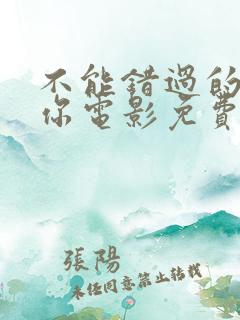 不能錯過的
你電影免費
張陽
未经同意禁止转载